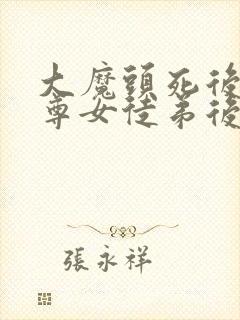 大魔頭死後
尊女徒弟後
張永祥